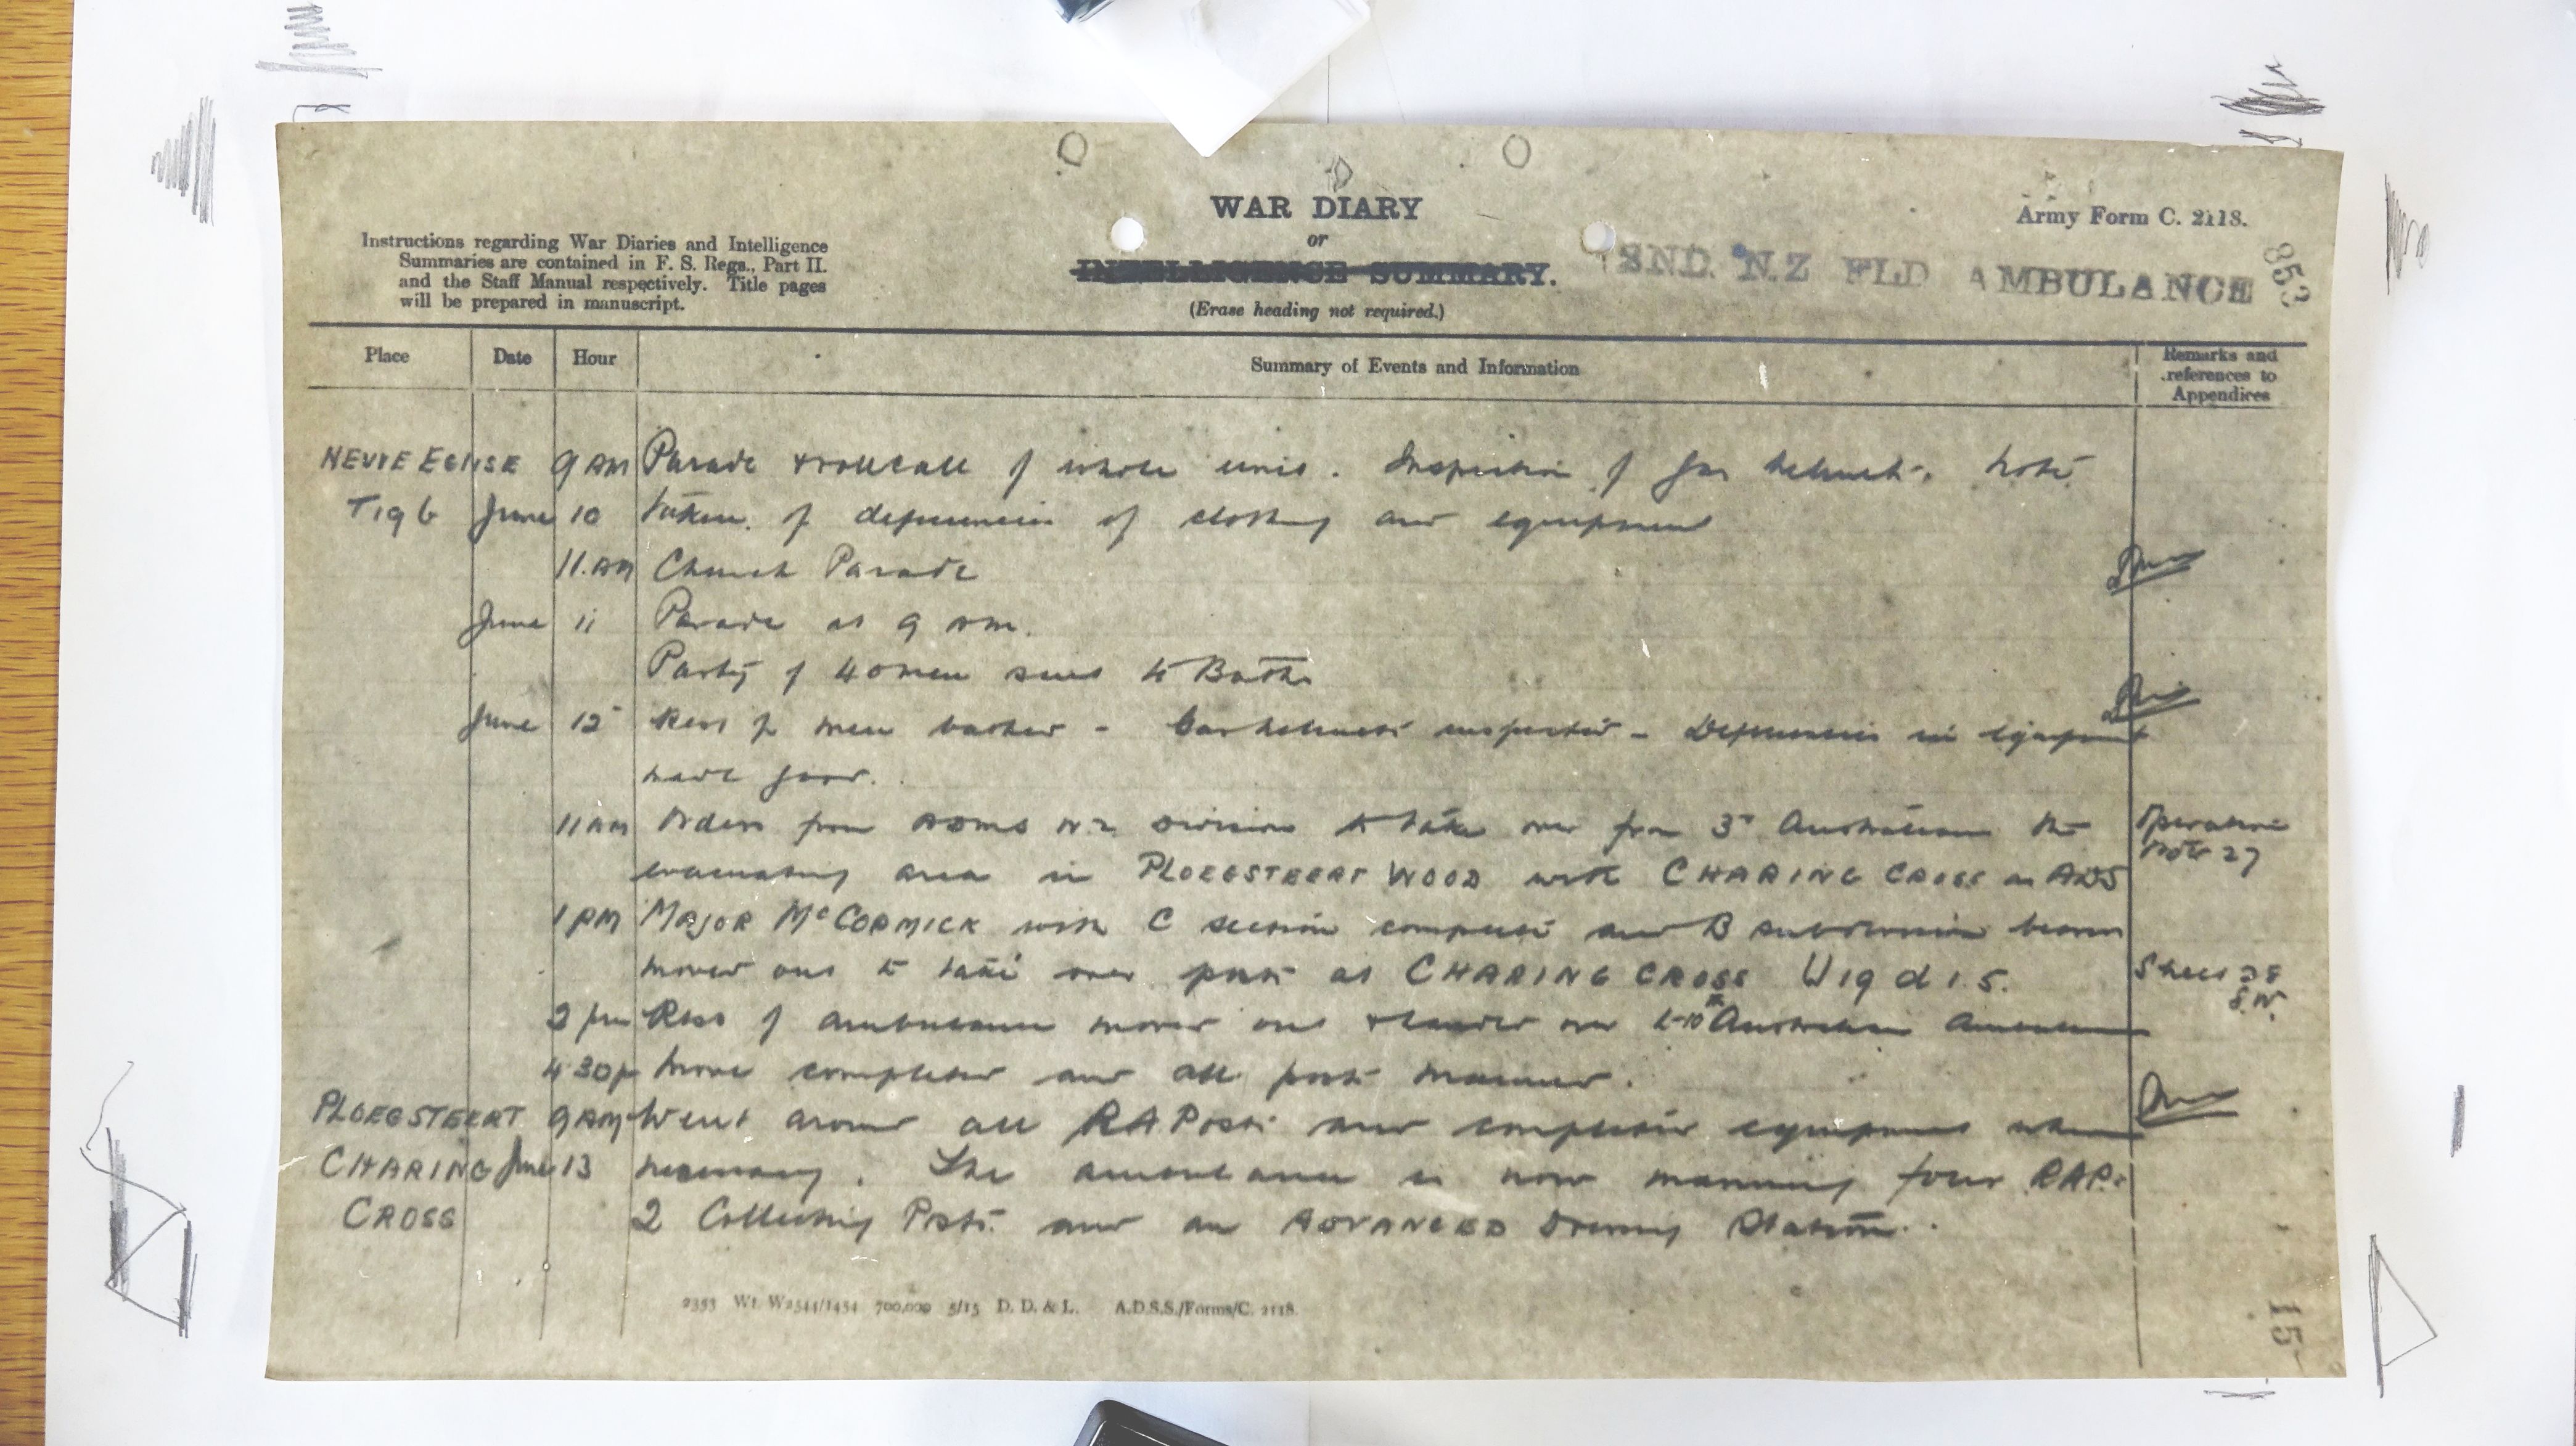 WAR DIARY
or
INTELLIGENCE SUMMARY.
(Erase heading not required.)
Instructions regarding War Diaries and Intelligence
Summaries are contained in F. S. Regs., Part II.
and the Staff Manual respectively. Title pages
will be prepared in manuscript.
Army Form C. 2118.
2ND. N.Z FLD AMBULANCE
853
Place Date Hour Summary of Events and Information Remarks and references to Appendices
NEUVE EGLISE 9 AM Parade & roll call of whole unit. Inspection of gas helmets. Note
T19 b June 10 taken of deficiencies of clothing and equipment
11.AM Church Parade
June 11 Parade at 9 am.
Party of 40 men sent to Baths
June 12 Rest of men bathed - Gas helmets inspected - Deficiencies in equipment
made good.
11 AM Orders from ADMS NZ Division to take over from 3rd Australians the Operation
evacuating area in PLOEGSTEERT WOOD with CHARING CROSS as ADS Order 27
1 PM MAJOR McCORMICK with C section complete and B subdivision bearers
moved out to take over post at CHARING CROSS U19 d 1.5. Sheet 28
S.W.
2 pm Rest of ambulance moved out & handed over to 10th Australian Ambulance
4 30 p Move completed and all posts manned.
PLOEGSTEERT 9 AM Went around all RA Posts and completed equipment where
CHARING June 13 necessary. The ambulance is now manning four RAPs
CROSS 2 Collecting Posts and an ADVANCED Dressing Station.
2353 Wt. W2544/1454 700,000 5/15 D. D. & L. A.D.S.S./Forms/C. 2118.
15